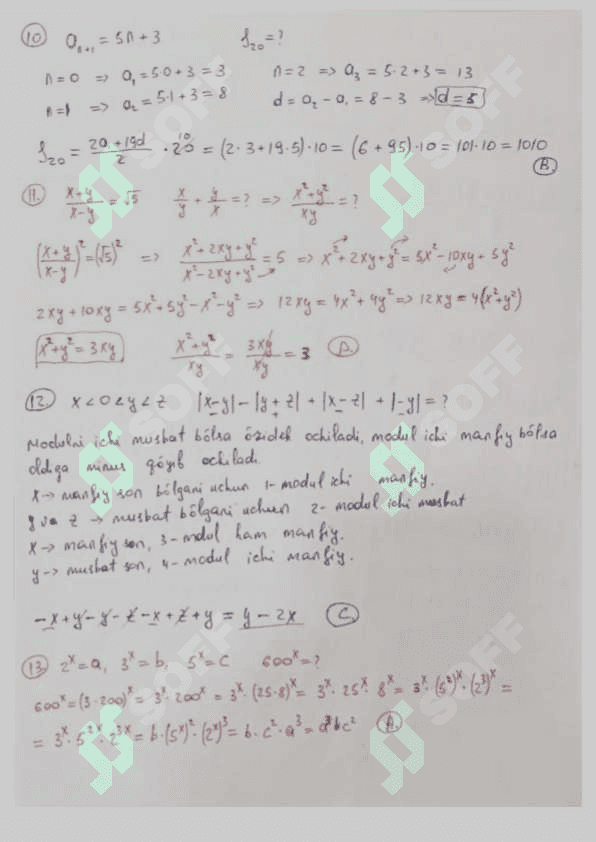 10. aₙ₊₁ = 5n + 3 S₂₀ = ?
n = 0 ⇒ a₁ = 5·0 + 3 = 3 n = 2 ⇒ a₃ = 5·2 + 3 = 13
n = 1 ⇒ a₂ = 5·1 + 3 = 8 d = a₂ - a₁ = 8 - 3 ⇒ d = 5
S₂₀ = (2a₁ + 19d)/2 · 20 10 = (2·3 + 19·5)·10 = (6 + 95)·10 = 101·10 = 1010
B.
11. (x+y)/(x-y) = √5 x/y + y/x = ? ⇒ (x²+y²)/(xy) = ?
((x+y)/(x-y))² = (√5)² ⇒ (x²+2xy+y²)/(x²-2xy+y²) = 5 ⇒ x²+2xy+y² = 5x²-10xy+5y²
2xy+10xy = 5x²+5y²-x²-y² ⇒ 12xy = 4x²+4y² ⇒ 12xy = 4(x²+y²)
x²+y² = 3xy (x²+y²)/(xy) = 3xy/xy = 3 D.
12. x < 0 < y < z |x-y| - |y+z| + |x-z| + |-y| = ?
Modulni ichi musbat bólsa ózidek ochiladi, modul ichi manfiy bólsa
oldiga minus qóyib ochiladi.
x → manfiy son bólgani uchun 1-modul ichi manfiy.
y va z → musbat bólgani uchun 2-modul ichi musbat
x → manfiy son, 3-modul ham manfiy.
y → musbat son, 4-modul ichi manfiy.
-x+y-y-z-x+z+y = y-2x C.
13. 2ˣ=a, 3ˣ=b, 5ˣ=c 600ˣ=?
600ˣ=(3·200)ˣ=3ˣ·200ˣ=3ˣ·(25·8)ˣ=3ˣ·25ˣ·8ˣ=3ˣ·(5²)ˣ·(2³)ˣ=
=3ˣ·5²ˣ·2³ˣ=b·(5ˣ)²·(2ˣ)³=b·c²·a³=a³bc² A.
SOFF
SOFF
SOFF
SOFF
SOFF
SOFF